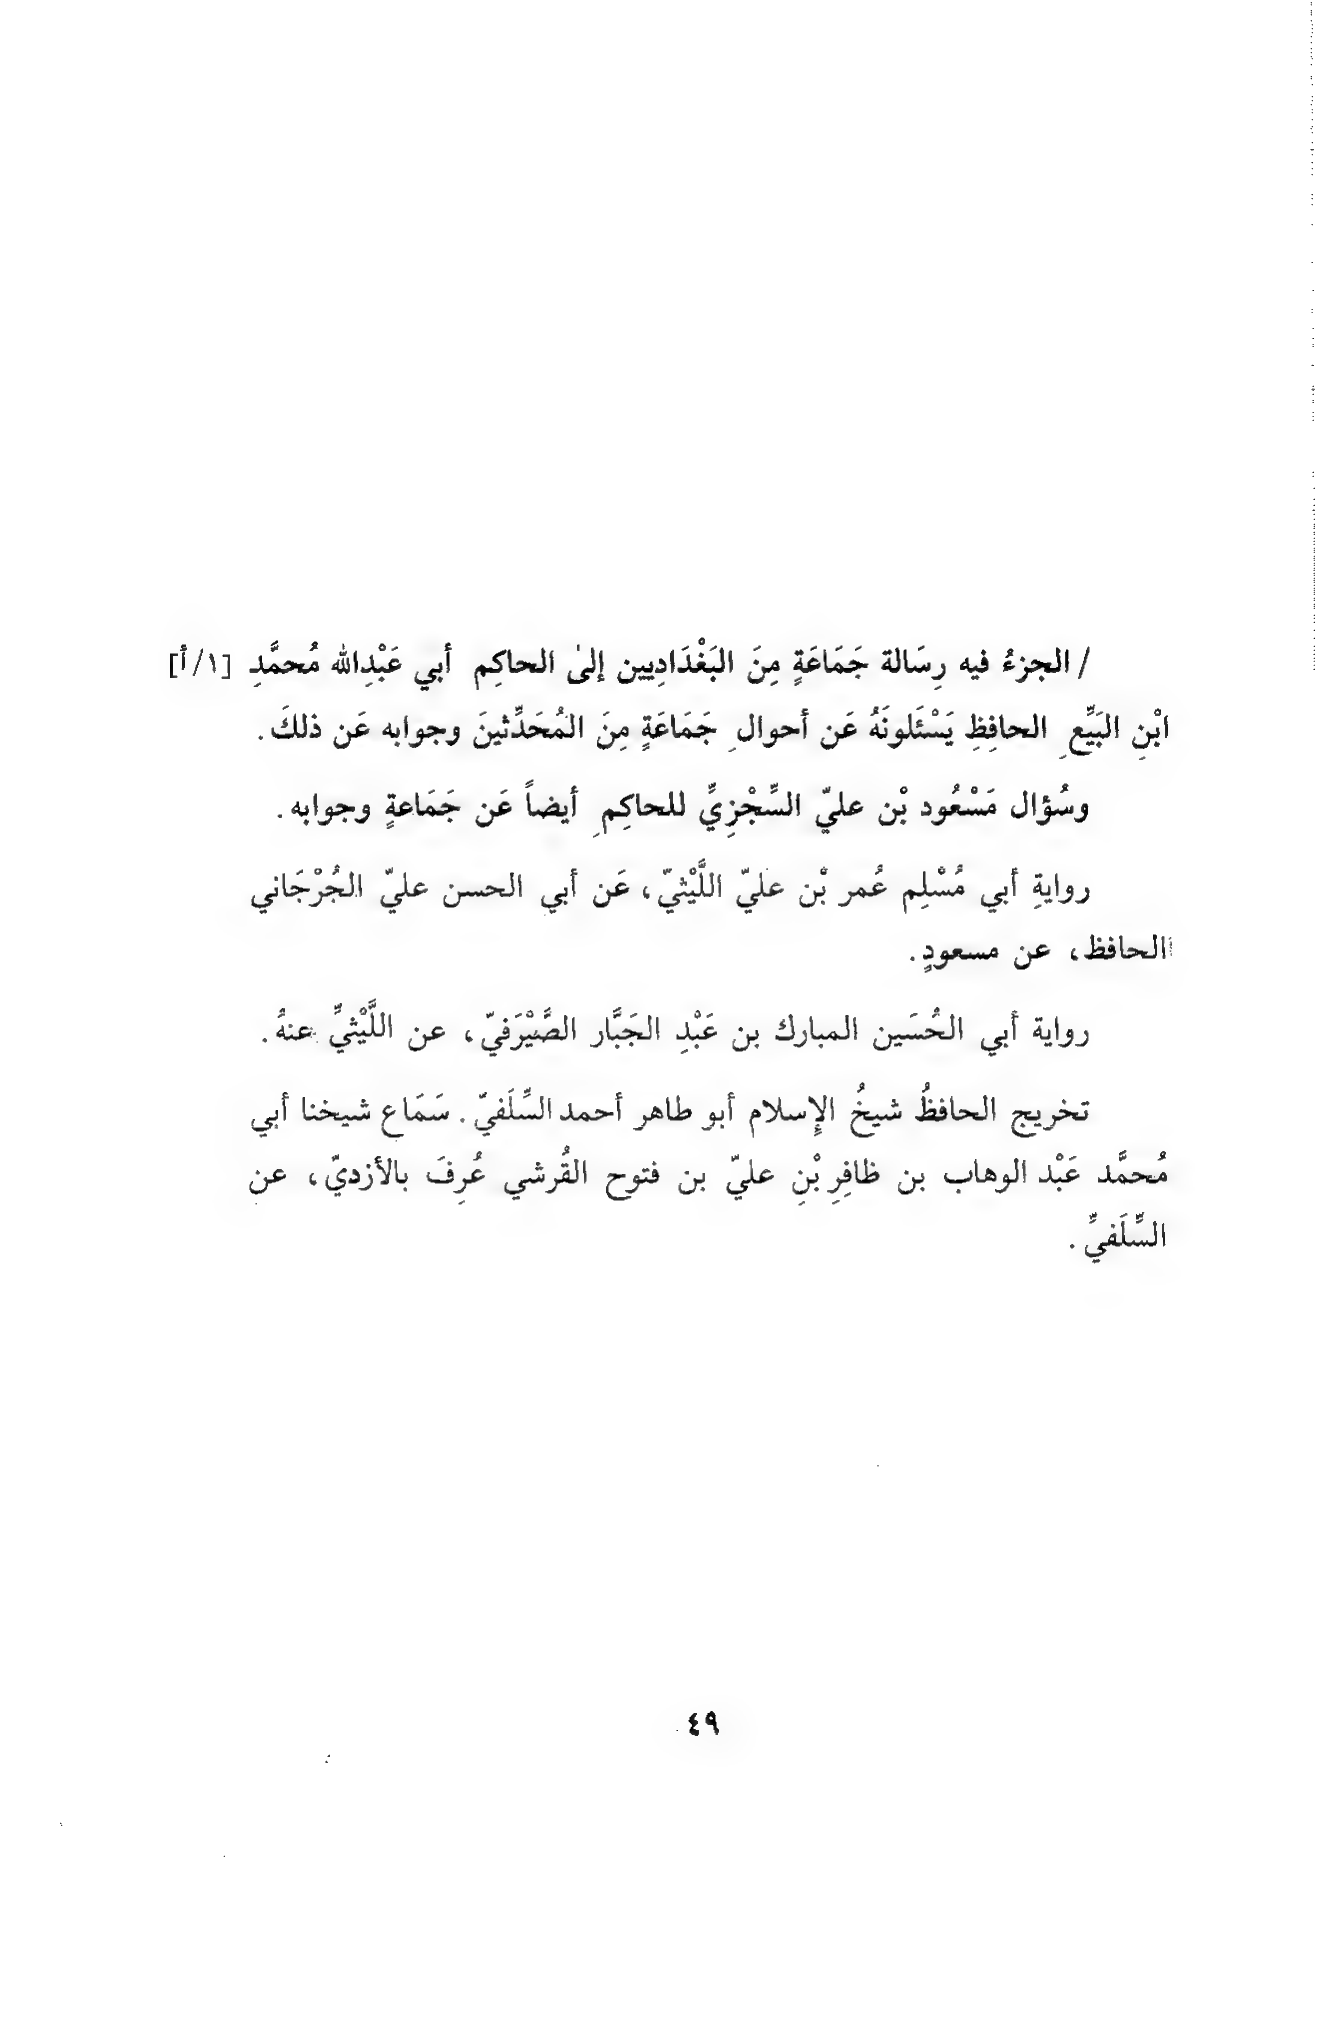 / الجزءُ فيه رِسَالة جَمَاعَةٍ مِنَ البَغْدَادِيين إلىٰ الحاكِم أبي عَبْدِالله مُحمَّدِ [١/أ]
ابْنِ البَيِّعِ الحافِظِ يَسْئَلونَهُ عَن أحوالِ جَمَاعَةٍ مِنَ المُحَدِّثينَ وجوابه عَن ذلكَ .
وسُؤال مَسْعُود بْن عليّ السِّجْزِيِّ للحاكِمِ أيضاً عَن جَمَاعةٍ وجوابه .
روايةِ أبي مُسْلِم عُمر بْن عليّ اللَّيْثيّ، عَن أبي الحسن عليّ الجُرْجَاني
الحافظ، عن مسعودٍ .
رواية أبي الحُسَين المبارك بن عَبْدِ الجَبَّار الصَّيْرَفيّ، عن اللَّيْثيِّ عنهُ .
تخريج الحافظُ شيخُ الإِسلام أبو طاهر أحمد السِّلَفيّ . سَمَاع شيخنا أبي
مُحمَّد عَبْد الوهاب بن ظافِرِ بْنِ عليّ بن فتوح القُرشي عُرِفَ بالأزديّ، عن
السِّلَفيِّ .
٤٩